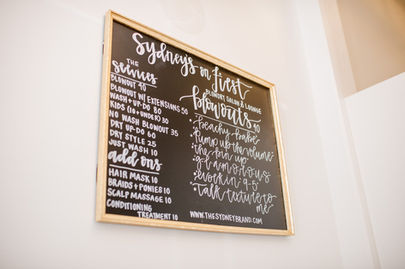 Sydney's on first
BLOWDRY SALON & LOUNGE
THE
Services
BLOWOUT 40
BLOWOUT W/ EXTENSIONS 50
WASH + UP-DO 80
KIDS (10+UNDER) 30
NO WASH BLOWOUT 35
DRY UP-DO 60
DRY STYLE 25
JUST WASH 10
add ons
HAIR MASK 10
BRAIDS + PONIES 10
SCALP MASSAGE 10
CONDITIONING
TREATMENT 10
blowouts 40
*beachy babe
*pump up the volume
*the pin up
*glamorous
*workin 9-5
*talk texture to
me
WWW.THESYDNEYBRAND.COM